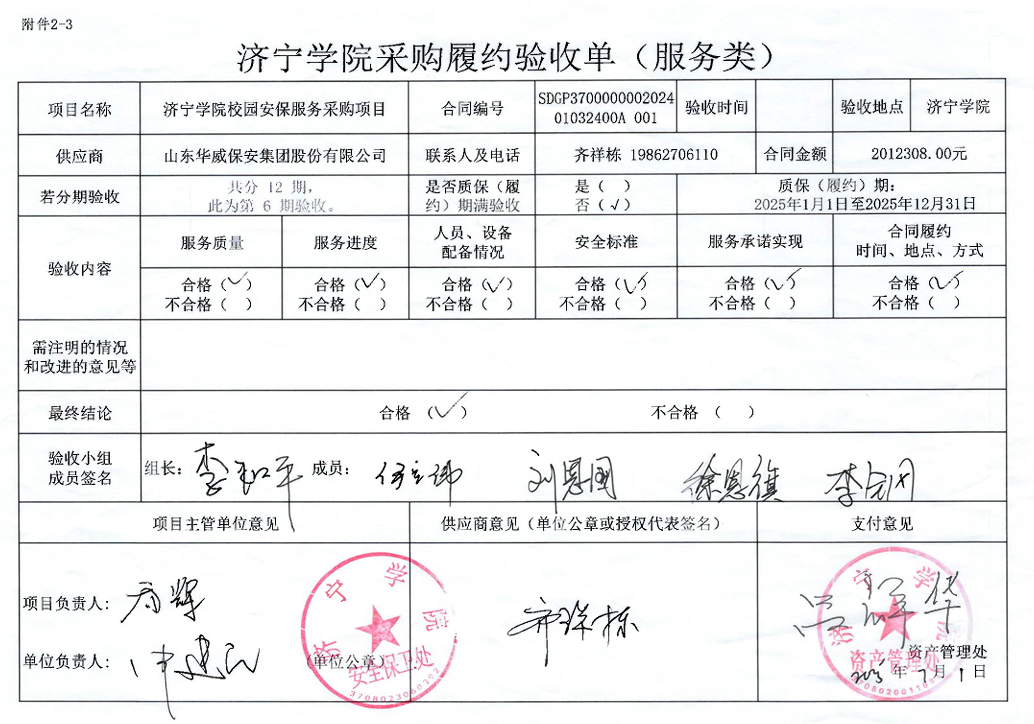 附件2-3
济宁学院采购履约验收单（服务类）
项目名称 济宁学院校园安保服务采购项目 合同编号 SDGP3700000002024 01032400A 001 验收时间 验收地点 济宁学院
供应商 山东华威保安集团股份有限公司 联系人及电话 齐祥栋 19862706110 合同金额 2012308.00元
若分期验收 共分 12 期， 是否质保（履 是（ ） 质保（履约）期：
此为第 6 期验收。 约）期满验收 否（√） 2025年1月1日至2025年12月31日
验收内容 服务质量 服务进度 人员、设备 配备情况 安全标准 服务承诺实现 合同履约 时间、地点、方式
合格（√） 合格（√） 合格（√） 合格（√） 合格（√） 合格（√）
不合格（ ） 不合格（ ） 不合格（ ） 不合格（ ） 不合格（ ） 不合格（ ）
需注明的情况
和改进的意见等
最终结论 合格 （√） 不合格 （ ）
验收小组
成员签名 组长： 李和平 成员： 刘恩国 徐恩旗
项目主管单位意见 供应商意见（单位公章或授权代表签名） 支付意见
项目负责人：
单位负责人： （单位公章）
济宁学院
安全保卫处
齐祥栋
济宁学院
资产管理处
资产管理处
年 7月1日